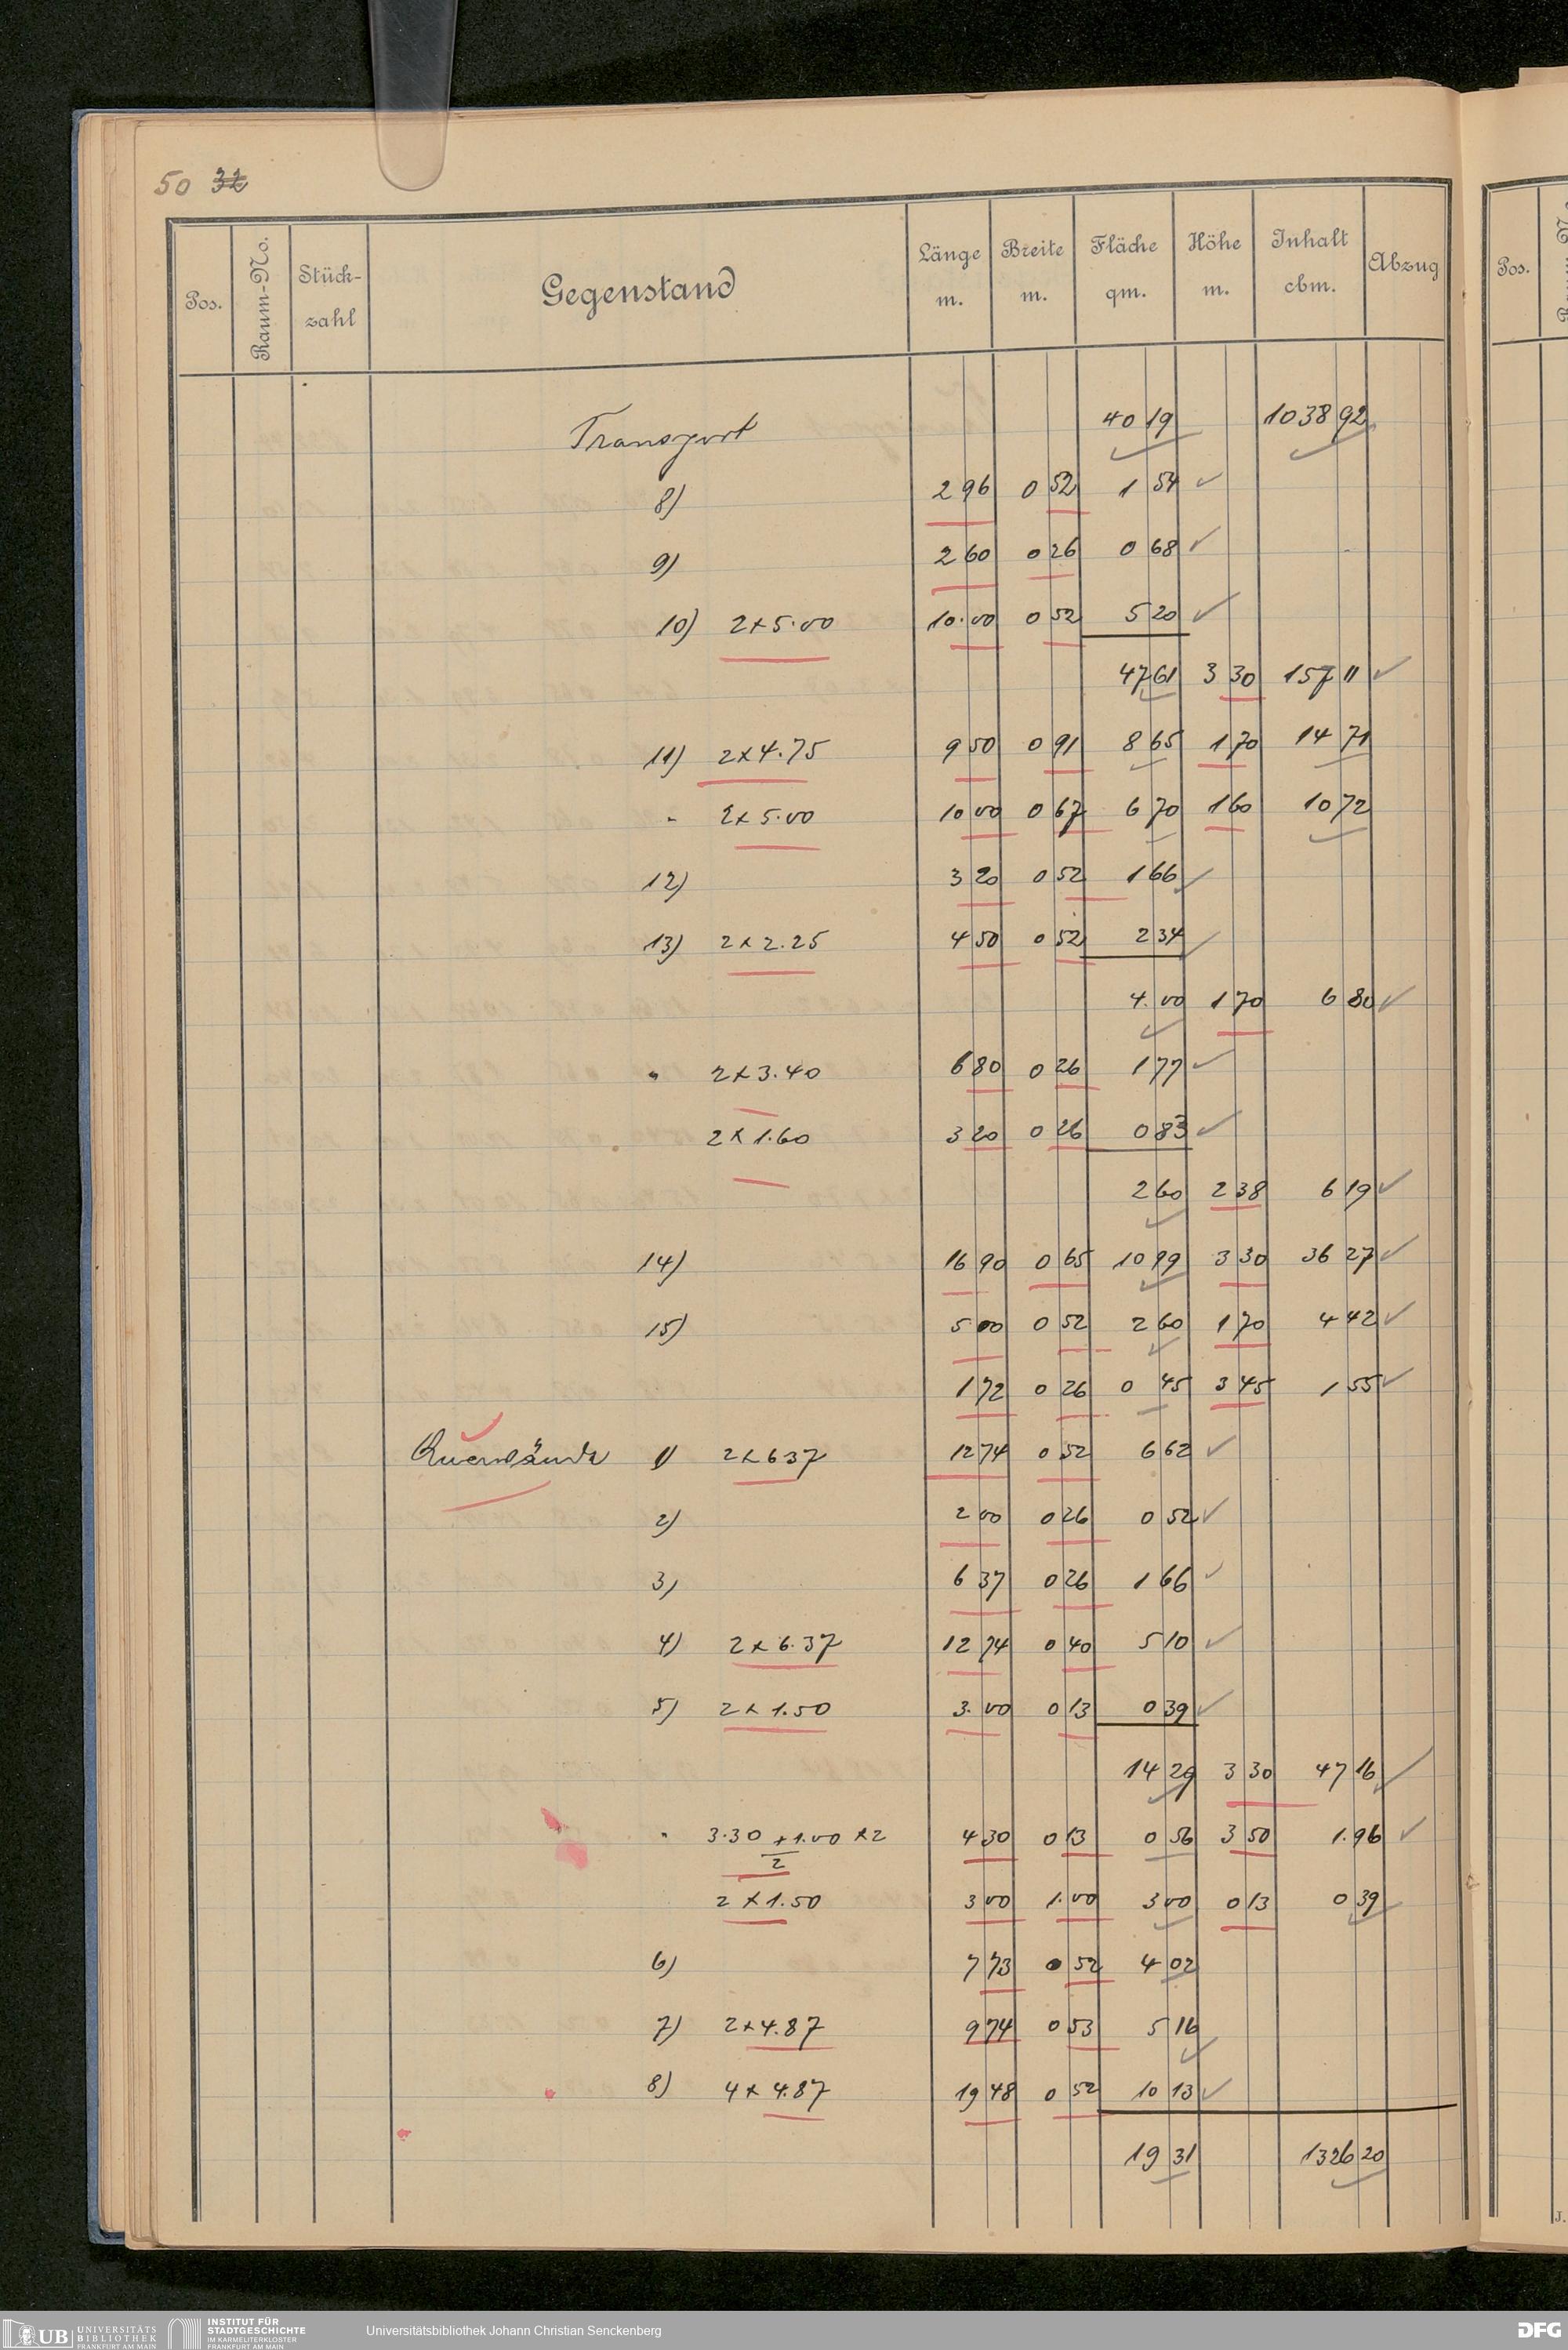 50 32
Pos. Raum-No. Stück-zahl Gegenstand Länge m. Breite m. Fläche qm. Höhe m. Inhalt cbm. Abzug
Transport 40 19 1038 92
8) 2 96 0 52 1 54
9) 2 60 0 26 0 68
10) 2 x 5.00 10.00 0 52 5 20
47 61 3 30 157 11
11) 2 x 4.75 9 50 0 91 8 65 1 70 14 71
" 2 x 5.00 10 00 0 67 6 70 1 60 10 72
12) 3 20 0 52 1 66
13) 2 x 2.25 4 50 0 52 2 34
4.00 1 70 6 80
" 2 x 3.40 6 80 0 26 1 77
2 x 1.60 3 20 0 26 0 83
2 60 2 38 6 19
14) 16 90 0 65 10 99 3 30 36 27
15) 5 00 0 52 2 60 1 70 4 42
1 72 0 26 0 45 3 45 1 55
Querwände 1) 2 x 6 37 12 74 0 52 6 62
2) 2 00 0 26 0 52
3) 6 37 0 26 1 66
4) 2 x 6.37 12 74 0 40 5 10
5) 2 x 1.50 3.00 0 13 0 39
14 29 3 30 47 16
" 3.30 + 1.00 x 2 4 30 0 13 0 56 3 50 1.96
2
2 x 1.50 3 00 1.00 3 00 0 13 0 39
6) 7 73 0 52 4 02
7) 2 x 4.87 9 74 0 53 5 16
8) 4 x 4.87 19 48 0 52 10 13
19 31 1326 20
Pos.
J.
UB UNIVERSITÄTS BIBLIOTHEK FRANKFURT AM MAIN
INSTITUT FÜR STADTGESCHICHTE IM KARMELITERKLOSTER FRANKFURT AM MAIN
Universitätsbibliothek Johann Christian Senckenberg
DFG